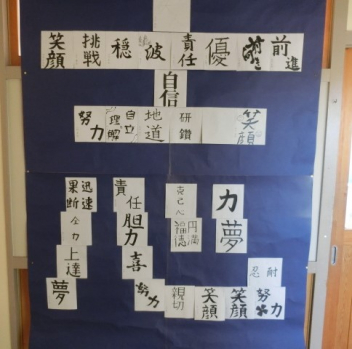 笑顔 挑戦 穏 波 責任 優 前進
自信
努力 理解 自立 地道 研鑽 笑顔
果断 迅速 責任 克己心 力
全力 胆力 福徳 円満 夢
上達 喜 忍耐
夢 努力 親切 笑顔 笑顔 努力